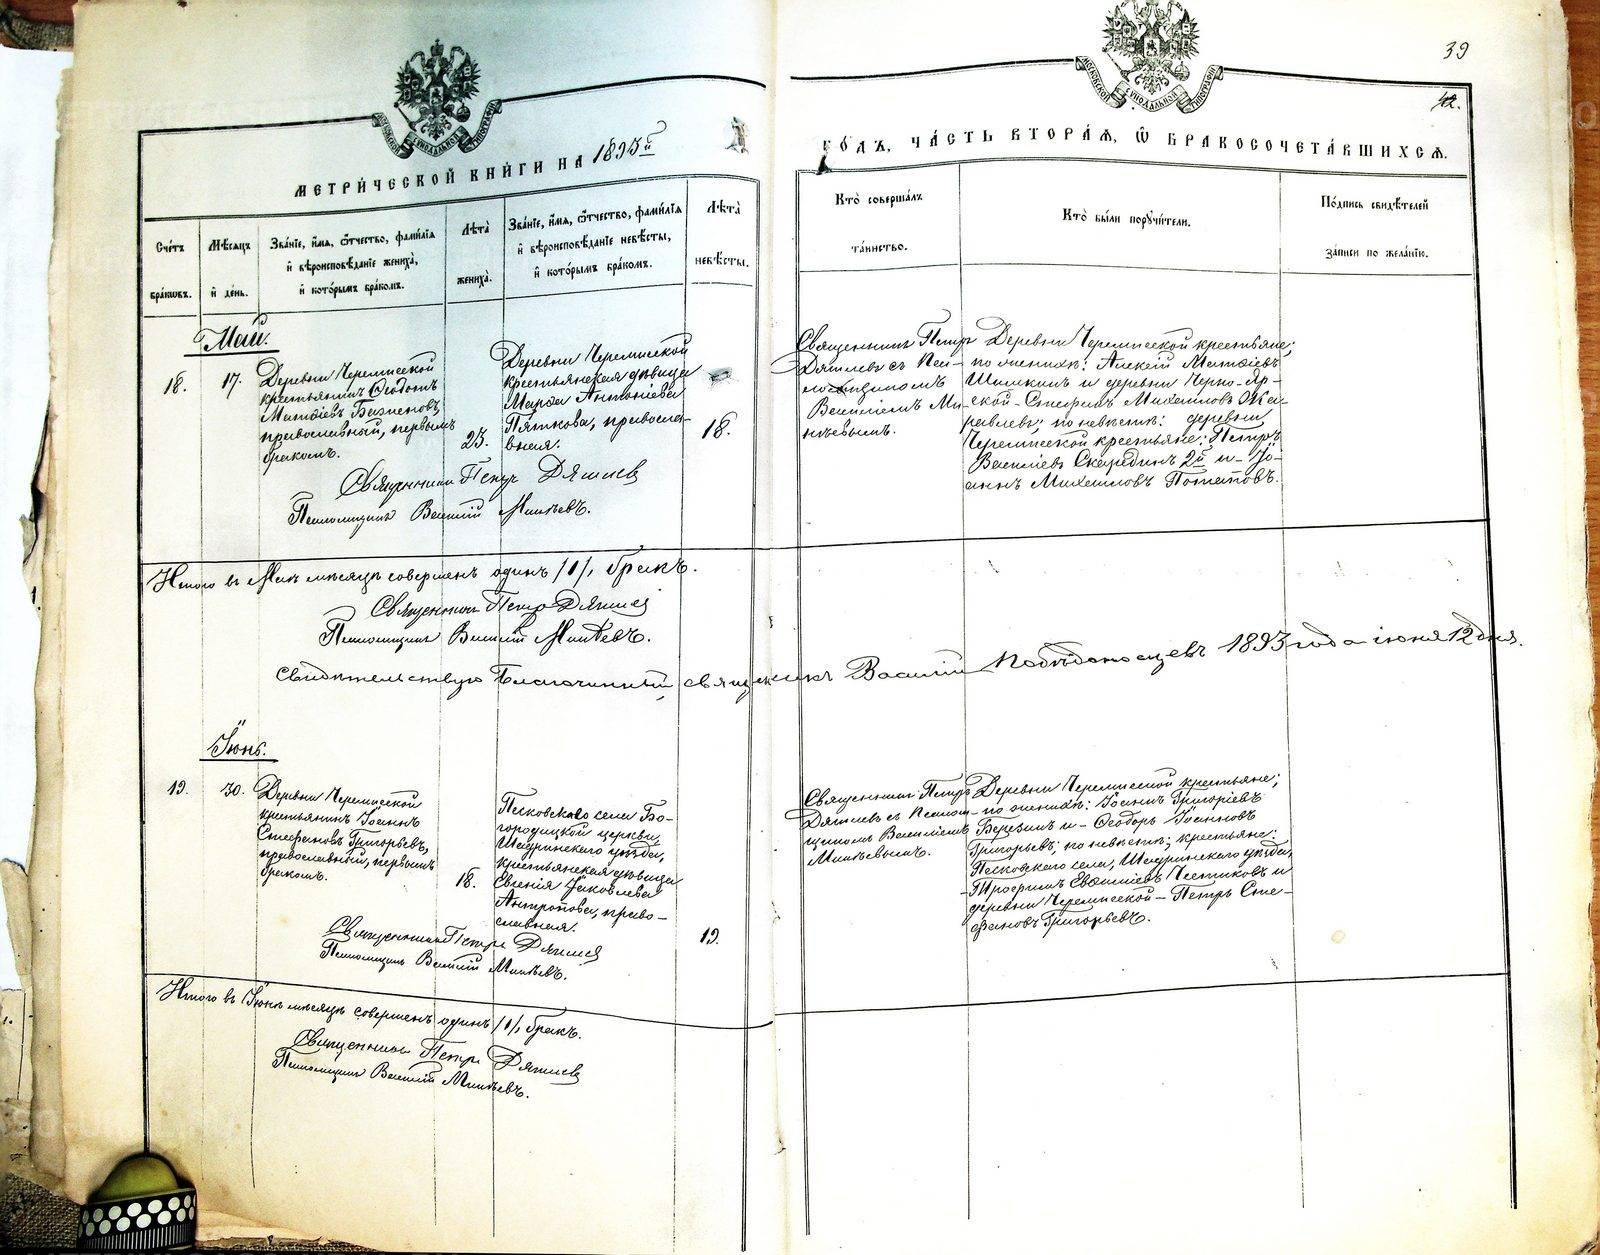 39
42.
МОСКОВСКОЙ СѴНОДАЛЬНОЙ ТИПОГРАФІИ
МОСКОВСКОЙ СѴНОДАЛЬНОЙ ТИПОГРАФІИ
МЕТРИ́ЧЕСКОЙ КНИ́ГИ НА 1893й
ГО́ДЪ, ЧА́СТЬ ВТОРА́Ѧ, Ѽ БРАКОСОЧЕТА́ВШИХСѦ.
Сче́тъ
бра́кѡвъ.
Мѣ́сѧцъ
и҆ де́нь.
Зва́нїе, и҆́мѧ, ѻ҆́тчество, фамѝлїѧ
и҆ вѣроисповѣ́данїе жениха̀,
и҆ кото́рымъ бра́комъ.
Лѣта̀
жениха̀.
Зва́нїе, и҆́мѧ, ѻ҆́тчество, фамѝлїѧ
и҆ вѣроисповѣ́данїе невѣ́сты,
и҆ кото́рымъ бра́комъ.
Лѣта̀
невѣ́сты.
Кто̀ соверша́лъ
та́инство.
Кто̀ бы́ли порꙋчи́тели.
По́дпись свидѣ́телей
за́писи по жела́нїю.
Май.
18.
17.
Деревни Черемисской
крестьянинъ Ѳеодотъ
Матѳіевъ Баженовъ,
православный, первымъ
бракомъ.
23.
Деревни Черемисской
крестьянская дѣвица
Марѳа Антоніева
Пяткова, православ-
вная.
18.
Священникъ Петръ
Дягилевъ съ Псал-
ломщикомъ
Василіемъ Ми-
нѣевымъ.
Деревни Черемисской крестьяне;
по женихѣ: Алексій Матѳіевъ
Шишкинъ и деревни Черно-Яр-
ской - Стефанъ Михаиловъ Жу-
равлевъ; по невѣстѣ: деревни
Черемисской крестьяне: Петръ
Василіевъ Скарединъ 2й и Іо-
аннъ Михаиловъ Потаповъ.
Священникъ Петръ Дягилев
Псаломщикъ Василій Минѣевъ.
Итого въ Маѣ мѣсяцѣ совершенъ одинъ /1/ бракъ.
Священникъ Петръ Дягилев
Псаломщикъ Василій Минѣевъ.
Свидѣтельствую Благочинный, священникъ Василій Побѣдоносцевъ 1893 года іюня 12 дня.
Іюнь.
19.
30.
Деревни Черемисской
крестьянинъ Іоаннъ
Стефановъ Григорьевъ,
православный, первымъ
бракомъ.
18.
Песковскаго села Бо-
городицкой церкви,
Шадринскаго уѣзда,
крестьянская дѣвица
Евгенія Іаковлева
Антропова, право-
славная.
19.
Священникъ Петръ
Дягилевъ съ Псалом-
щикомъ Василіемъ
Минѣевымъ.
Деревни Черемисской крестьяне;
по женихѣ: Іоаннъ Григоріевъ
Березинъ и Ѳеодоръ Іоанновъ
Григорьевъ; по невѣстѣ; крестьяне:
Песковскаго села, Шадринскаго уѣзда,
Трофимъ Евѳиміевъ Чистяковъ и
деревни Черемисской - Петръ Сте-
фановъ Григорьевъ.
Священникъ Петръ Дягилев
Псаломщикъ Василій Минѣевъ.
Итого въ Іюнѣ мѣсяцѣ совершенъ одинъ /1/ бракъ.
Священникъ Петръ Дягилев
Псаломщикъ Василій Минѣевъ.